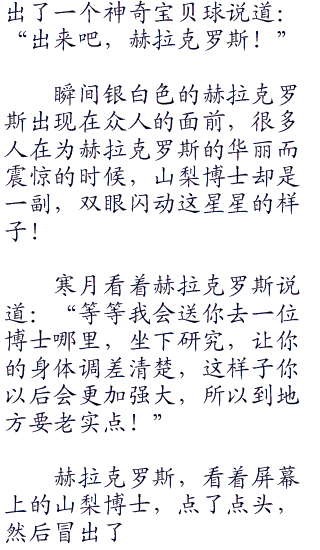 出了一个神奇宝贝球说道：
“出来吧，赫拉克罗斯！”
瞬间银白色的赫拉克罗
斯出现在众人的面前，很多
人在为赫拉克罗斯的华丽而
震惊的时候，山梨博士却是
一副，双眼闪动这星星的样
子！
寒月看着赫拉克罗斯说
道：“等等我会送你去一位
博士哪里，坐下研究，让你
的身体调差清楚，这样子你
以后会更加强大，所以到地
方要老实点！”
赫拉克罗斯，看着屏幕
上的山梨博士，点了点头，
然后冒出了